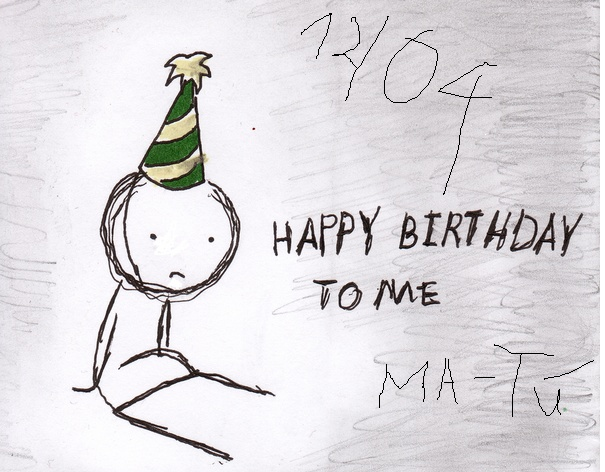 12/04
HAPPY BIRTHDAY
TO ME
MA-Tú